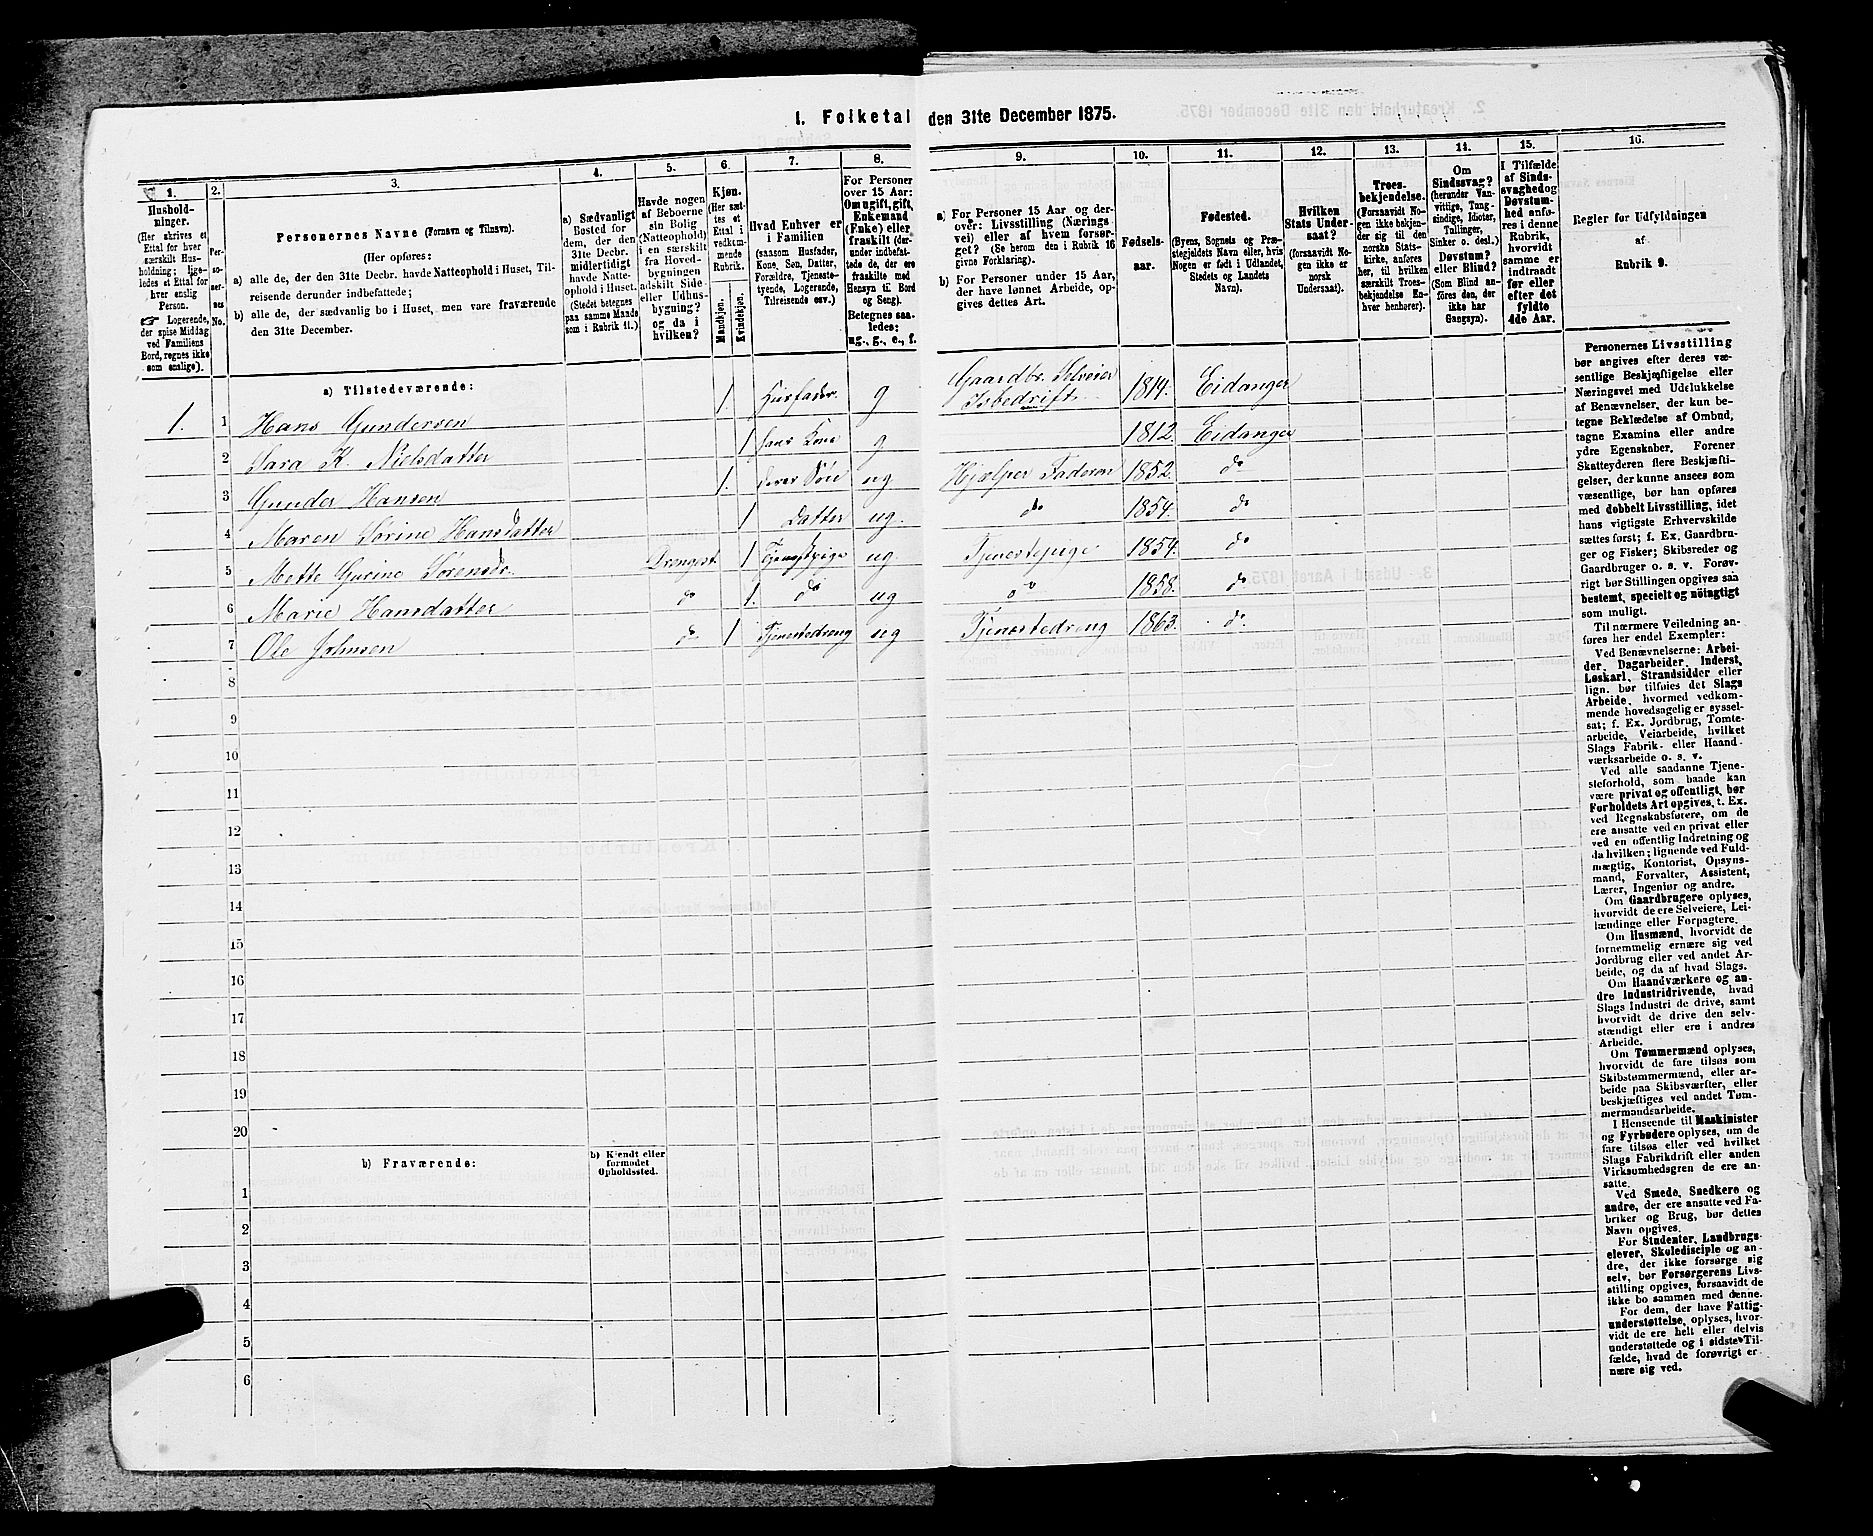 1. Folketal den 31te December 1875.
1.
Hushold-
ninger.
(Her skrives et
Ettal for hver
særskilt Hus-
holdning; lige-
ledes et Ettal for
hver enslig
Person.
☞ Logerende,
der spise Middag
ved Familiens
Bord, regnes ikke
som enslige).
2.
No.
3.
Personernes Navne (Fornavn og Tilnavn).
(Her opføres:
a) alle de, der den 31te Decbr. havde Natteophold i Huset, Til-
reisende derunder indbefattede;
b) alle de, der sædvanlig bo i Huset, men vare fraværende
den 31te December.
4.
a) Sædvanligt
Bosted for
dem, der den
31te Decbr.
midlertidigt
havde Natte-
ophold i Huset.
(Stedet betegnes
paa samme Maade
som i Rubrik 11.)
5.
Havde nogen
af Beboerne
sin Bolig
(Natteophold)
i en særskilt
fra Hoved-
bygningen
adskilt Side-
eller Udhus-
bygning?
og da i
hvilken?
6.
Kjøn.
(Her sæt-
tes et
Ettal i
vedkom-
mende
Rubrik.
Mandkjøn.
Kvindekjøn.
7.
Hvad Enhver er
i Familien
(saasom Husfader,
Kone, Søn, Datter,
Forældre, Tjeneste-
tyende, Logerende,
Tilreisende osv.)
8.
For Personer
over 15 Aar:
Om ugift, gift,
Enkemand
(Enke) eller
fraskilt (der-
under indbefat-
tede de, der ere
fraskilte med
Hensyn til Bord
og Seng).
Betegnes saa-
ledes:
ug., g., e., f.
9.
a) For Personer 15 Aar og der-
over: Livsstilling (Nærings-
vei) eller af hvem forsør-
get? (Se herom den i Rubrik 16
givne Forklaring).
b) For Personer under 15 Aar,
der have lønnet Arbeide, op-
gives dettes Art.
10.
Fødsels-
aar.
11.
Fødested.
(Byens, Sognets og Præ-
stegjeldets Navn eller, hvis
Nogen er født i Udlandet,
Stedets og Landets
Navn).
12.
Hvilken
Stats Under-
saat?
(forsaavidt No-
gen ikke er
norsk
Undersaat).
13.
Troes-
bekjendelse.
(Forsaavidt No-
gen ikke bekjen-
der sig til den
norske Stats-
kirke, anføres
her, til hvilken
særskilt Troes-
bekjendelse En-
hver henhører).
14.
Om
Sindssvag?
(herunder Van-
vittige, Tung-
sindige, Idioter,
Tullinger,
Sinker o. desl.)
Døvstum?
eller Blind?
(Som Blind an-
føres den, der
ikke har
Gangsyn).
15.
I Tilfælde
af Sinds-
svaghed og
Døvstum-
hed anfø-
res i denne
Rubrik,
hvorvidt
samme er
indtraadt
før eller
efter det
fyldte
4de Aar.
16.
Regler for Udfyldningen
af
Rubrik 9.
a) Tilstedeværende:
1. 1 Hans Gundersen 1. Husfader g Gaardbr. Selveier Isbedrift 1814. Eidanger
2 Sara K. Nielsdatter 1 hans Kone g 1812 Eidanger
3 Gunder Hansen 1. deres Søn ug Hjælper Faderen 1852. do
4 Maren Sorine Hansdatter 1 Datter ug. do 1854. do
5 Mette Gurine Sørensd. Drengest. 1 Tjenestpige ug Tjenestepige 1854. do
6 Marie Hansdatter do 1. do ug do 1858. do
7 Ole Johnsen do. 1 Tjenestedreng ug Tjenestedreng 1863. do.
8
9
10
11
12
13
14
15
16
17
18
19
20
b) Fraværende:
b) Kjendt eller
formodet
Opholdssted.
1
2
3
4
5
6
Personernes Livsstilling
bør angives efter deres væ-
sentlige Beskjæftigelse eller
Næringsvei med Udelukkelse
af Benævnelser, der kun be-
tegne Beklædelse af Ombud,
tagne Examina eller andre
ydre Egenskaber. Forener
Skatteyderen flere Beskjæfti-
gelser, der kunne ansees som
væsentlige, bør han opføres
med dobbelt Livsstilling, idet
hans vigtigste Erhvervskilde
sættes først; f. Ex. Gaardbru-
ger og Fisker; Skibsreder og
Gaardbruger o. s. v. Forøv-
rigt bør Stillingen opgives saa
bestemt, specielt og nøiagtigt
som muligt.
Til nærmere Veiledning an-
føres her endel Exempler:
Ved Benævnelserne: Arbei-
der, Dagarbeider, Inderst,
Løskarl, Strandsidder eller
lign. bør tilføies det Slags
Arbeide, hvormed vedkom-
mende hovedsagelig er syssel-
sat; f. Ex. Jordbrug, Tomte-
arbeide, Veiarbeide, hvilket
Slags Fabrik- eller Haand-
værksarbeide o. s. v.
Ved alle saadanne Tjene-
steforhold, som baade kan
være privat og offentligt, bør
Forholdets Art opgives, t. Ex.
ved Regnskabsførere, om de
ere ansatte ved en privat eller
ved en offentlig Indretning og
da hvilken; lignende ved Fuld-
mægtig, Kontorist, Opsyns-
mand, Forvalter, Assistent,
Lærer, Ingeniør og andre.
Om Gaardbrugere oplyses,
hvorvidt de ere Selveiere, Lei-
lændinge eller Forpagtere.
Om Husmænd, hvorvidt de
fornemmelig ernære sig ved
Jordbrug eller ved andet Ar-
beide, og da af hvad Slags.
Om Haandværkere og an-
dre Industridrivende, hvad
Slags Industri de drive, samt
hvorvidt de drive den selv-
stændigt eller ere i andres
Arbeide.
Om Tømmermænd oplyses,
hvorvidt de fare tilsøs som
Skibstømmermænd, eller ar-
beide paa Skibsværfter, eller
beskjæftiges ved andet Tøm-
mermandsarbeide.
I Henseende til Maskinister
og Fyrbødere oplyses, om de
fare tilsøs eller ved hvilket
Slags Fabrikdrift eller anden
Virksomhedsgren de ere an-
satte.
Ved Smede, Snedkere og
andre, der ere ansatte ved Fa-
briker og Brug, bør dettes
Navn opgives.
For Studenter, Landbrugs-
elever, Skoledisciple og an-
dre, der ikke forsørge sig
selv, bør Forsørgerens Livs-
stilling opgives, forsaavidt de
ikke bo sammen med denne.
For dem, der have Fattig-
understøttelse, oplyses, hvor-
vidt de ere helt eller delvis
understøttede og i sidste Til-
fælde, hvad de forøvrigt er-
nære sig ved.